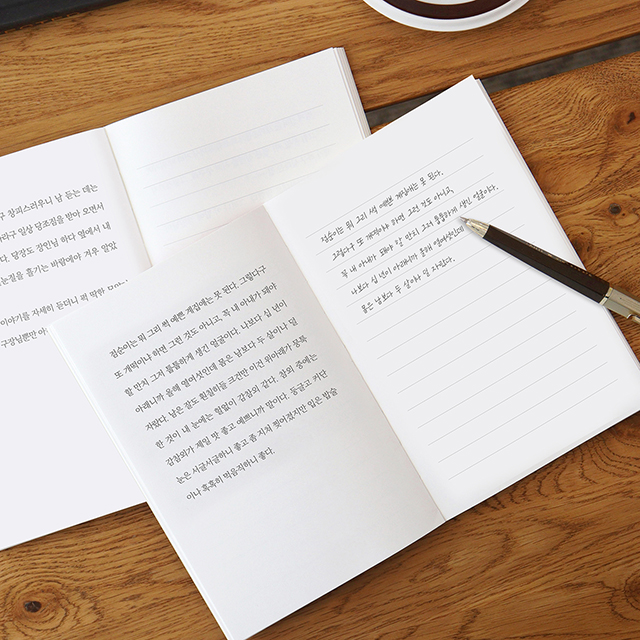 구 창피스러우니 남 듣는 데는
라구 일상 당조짐을 받아 오면서
다. 당장도 장인님 하다 옆에서 내
눈질을 흘기는 바람에야 겨우 알았
이야기를 자세히 듣더니 퍽 딱한
구장님뿐만 아
점순이는 뭐 그리 썩 예쁜 계집애는 못 된다. 그렇다구
또 개떡이냐 하면 그런 것도 아니고, 꼭 내 아내가 돼야
할 만치 그저 툽툽하게 생긴 얼굴이다. 나보다 십 년이
아래니까 올해 열여섯인데 몸은 남보다 두 살이나 덜
자랐다. 남은 잘도 훤칠히들 크건만 이건 위아래가 뭉툭
한 것이 내 눈에는 헐없이 감참외 같다. 참외 중에는
감참외가 제일 맛 좋고 예쁘니까 말이다. 둥글고 커단
눈은 서글서글하니 좋고 좀 지쳐 찢어졌지만 입은 밥술
이나 혹혹히 먹음직하니 좋다.
점순이는 뭐 그리 썩 예쁜 계집애는 못 된다.
그렇다구 또 개떡이냐 하면 그런 것도 아니고,
꼭 내 아내가 돼야 할 만치 그저 툽툽하게 생긴 얼굴이다.
나보다 십 년이 아래니까 올해 열여섯인데
몸은 남보다 두 살이나 덜 자랐다.